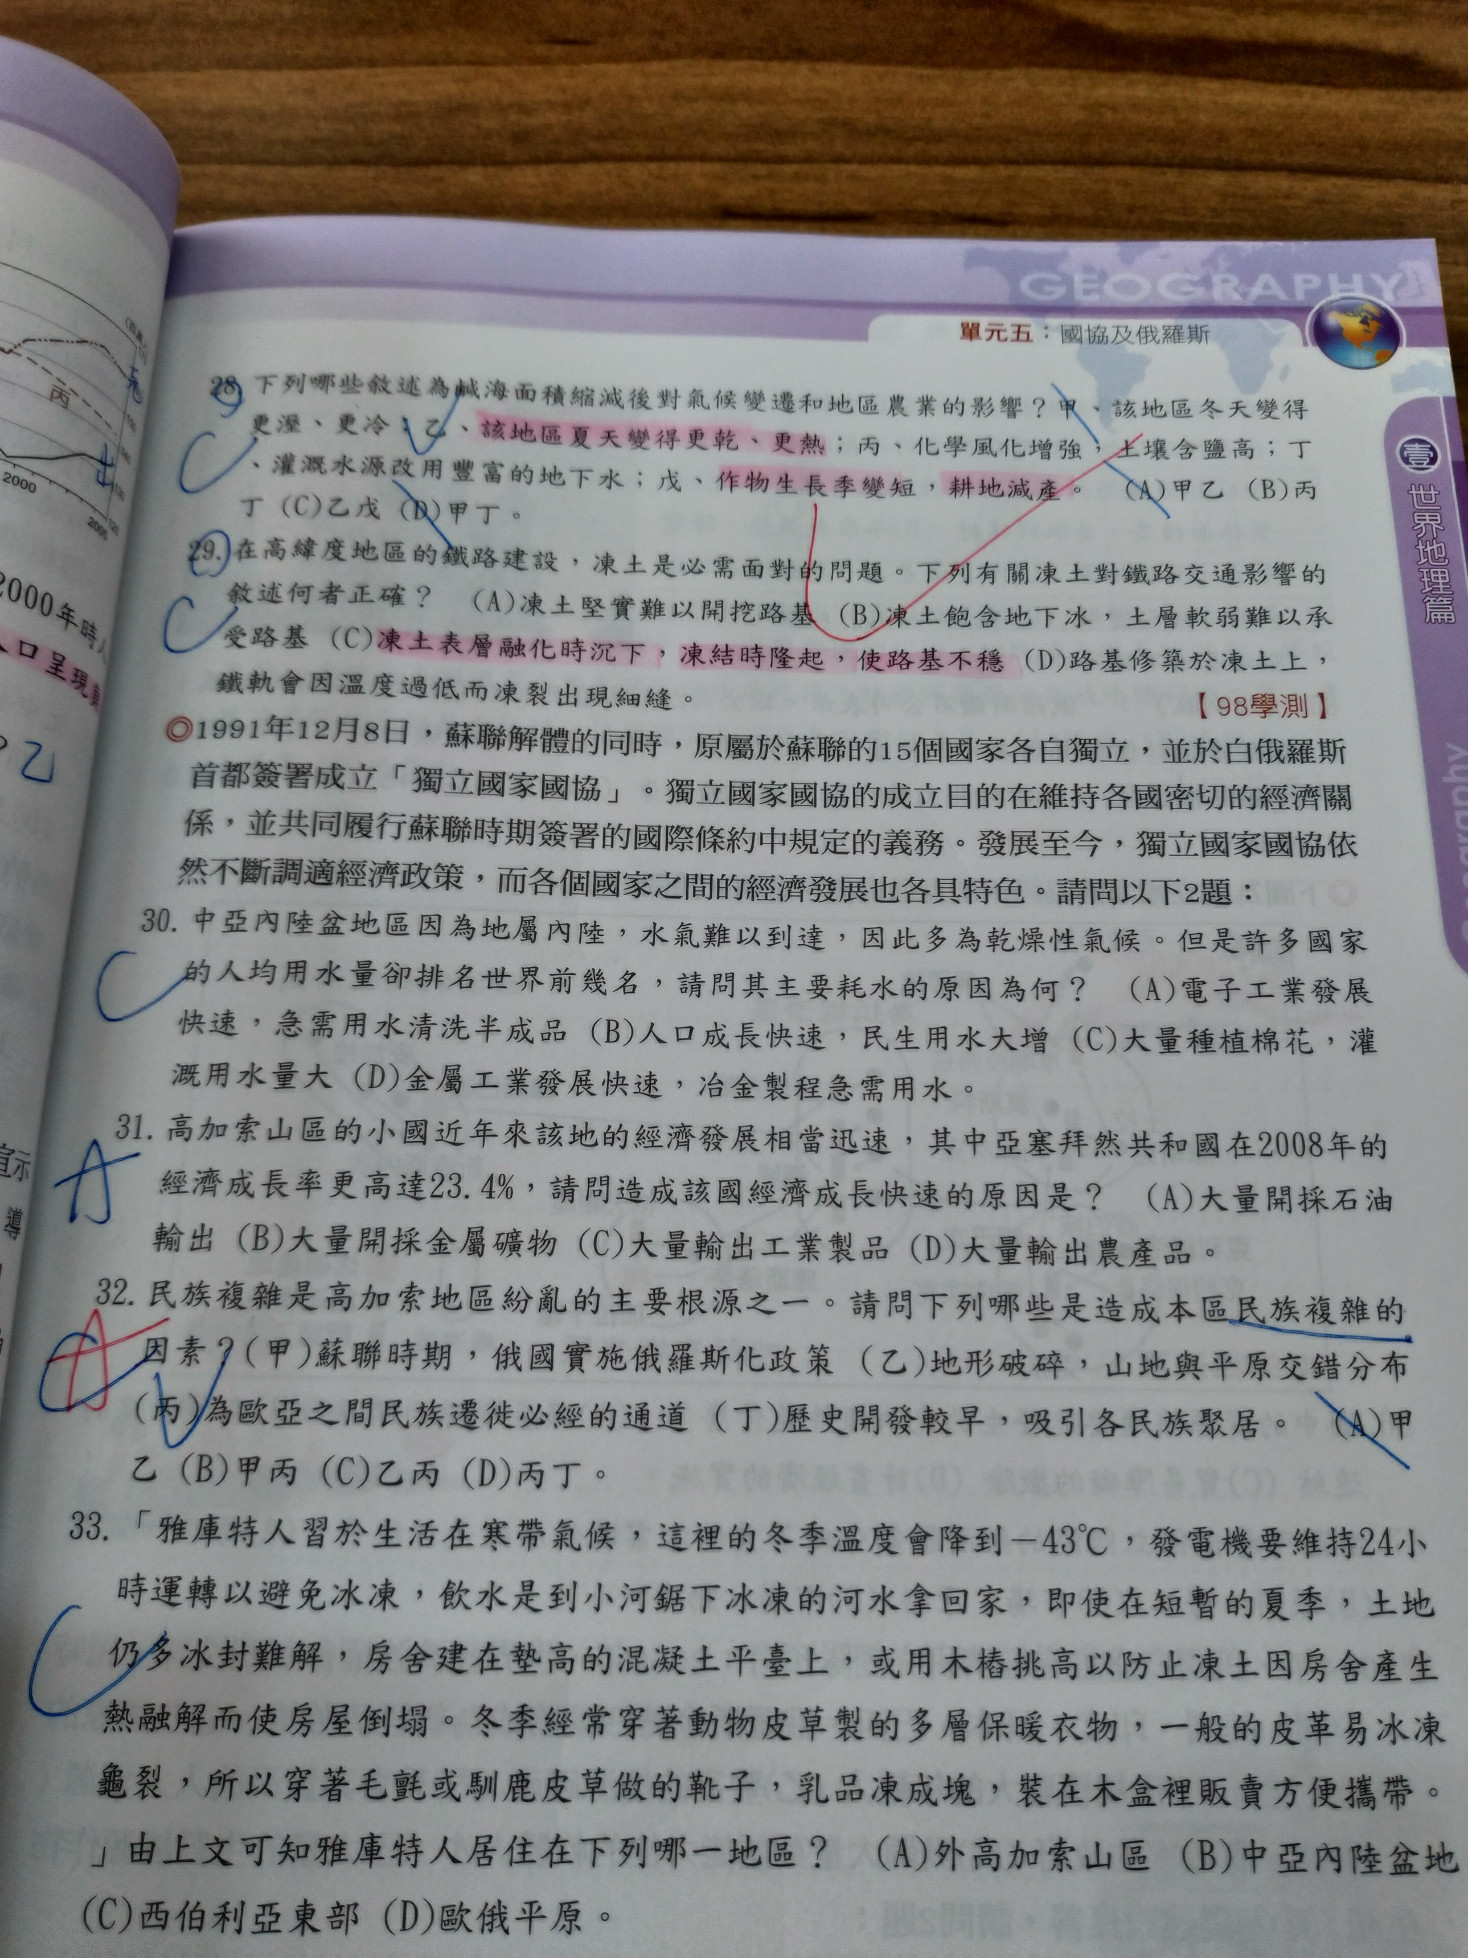 GEOGRAPHY
單元五：國協及俄羅斯
28. 下列哪些敘述為鹹海面積縮減後對氣候變遷和地區農業的影響？甲、該地區冬天變得
更溼、更冷；乙、該地區夏天變得更乾、更熱；丙、化學風化增強，土壤含鹽高；丁
、灌溉水源改用豐富的地下水；戊、作物生長季變短，耕地減產。 (A)甲乙 (B)丙
丁 (C)乙戊 (D)甲丁。
C
29. 在高緯度地區的鐵路建設，凍土是必需面對的問題。下列有關凍土對鐵路交通影響的
敘述何者正確？ (A)凍土堅實難以開挖路基 (B)凍土飽含地下冰，土層軟弱難以承
受路基 (C)凍土表層融化時沉下，凍結時隆起，使路基不穩 (D)路基修築於凍土上，
鐵軌會因溫度過低而凍裂出現細縫。 【98學測】
C
◎1991年12月8日，蘇聯解體的同時，原屬於蘇聯的15個國家各自獨立，並於白俄羅斯
首都簽署成立「獨立國家國協」。獨立國家國協的成立目的在維持各國密切的經濟關
係，並共同履行蘇聯時期簽署的國際條約中規定的義務。發展至今，獨立國家國協依
然不斷調適經濟政策，而各個國家之間的經濟發展也各具特色。請問以下2題：
30. 中亞內陸盆地區因為地屬內陸，水氣難以到達，因此多為乾燥性氣候。但是許多國家
的人均用水量卻排名世界前幾名，請問其主要耗水的原因為何？ (A)電子工業發展
快速，急需用水清洗半成品 (B)人口成長快速，民生用水大增 (C)大量種植棉花，灌
溉用水量大 (D)金屬工業發展快速，冶金製程急需用水。
C
31. 高加索山區的小國近年來該地的經濟發展相當迅速，其中亞塞拜然共和國在2008年的
經濟成長率更高達23.4%，請問造成該國經濟成長快速的原因是？ (A)大量開採石油
輸出 (B)大量開採金屬礦物 (C)大量輸出工業製品 (D)大量輸出農產品。
A
32. 民族複雜是高加索地區紛亂的主要根源之一。請問下列哪些是造成本區民族複雜的
因素？(甲)蘇聯時期，俄國實施俄羅斯化政策 (乙)地形破碎，山地與平原交錯分布
(丙)為歐亞之間民族遷徙必經的通道 (丁)歷史開發較早，吸引各民族聚居。 (A)甲
乙 (B)甲丙 (C)乙丙 (D)丙丁。
A
33. 「雅庫特人習於生活在寒帶氣候，這裡的冬季溫度會降到－43℃，發電機要維持24小
時運轉以避免冰凍，飲水是到小河鋸下冰凍的河水拿回家，即使在短暫的夏季，土地
仍多冰封難解，房舍建在墊高的混凝土平臺上，或用木樁挑高以防止凍土因房舍產生
熱融解而使房屋倒塌。冬季經常穿著動物皮草製的多層保暖衣物，一般的皮革易冰凍
龜裂，所以穿著毛氈或馴鹿皮草做的靴子，乳品凍成塊，裝在木盒裡販賣方便攜帶。
」由上文可知雅庫特人居住在下列哪一地區？ (A)外高加索山區 (B)中亞內陸盆地
(C)西伯利亞東部 (D)歐俄平原。
C
壹
世界地理篇
丙
2000
2000年時人
人口呈現
乙